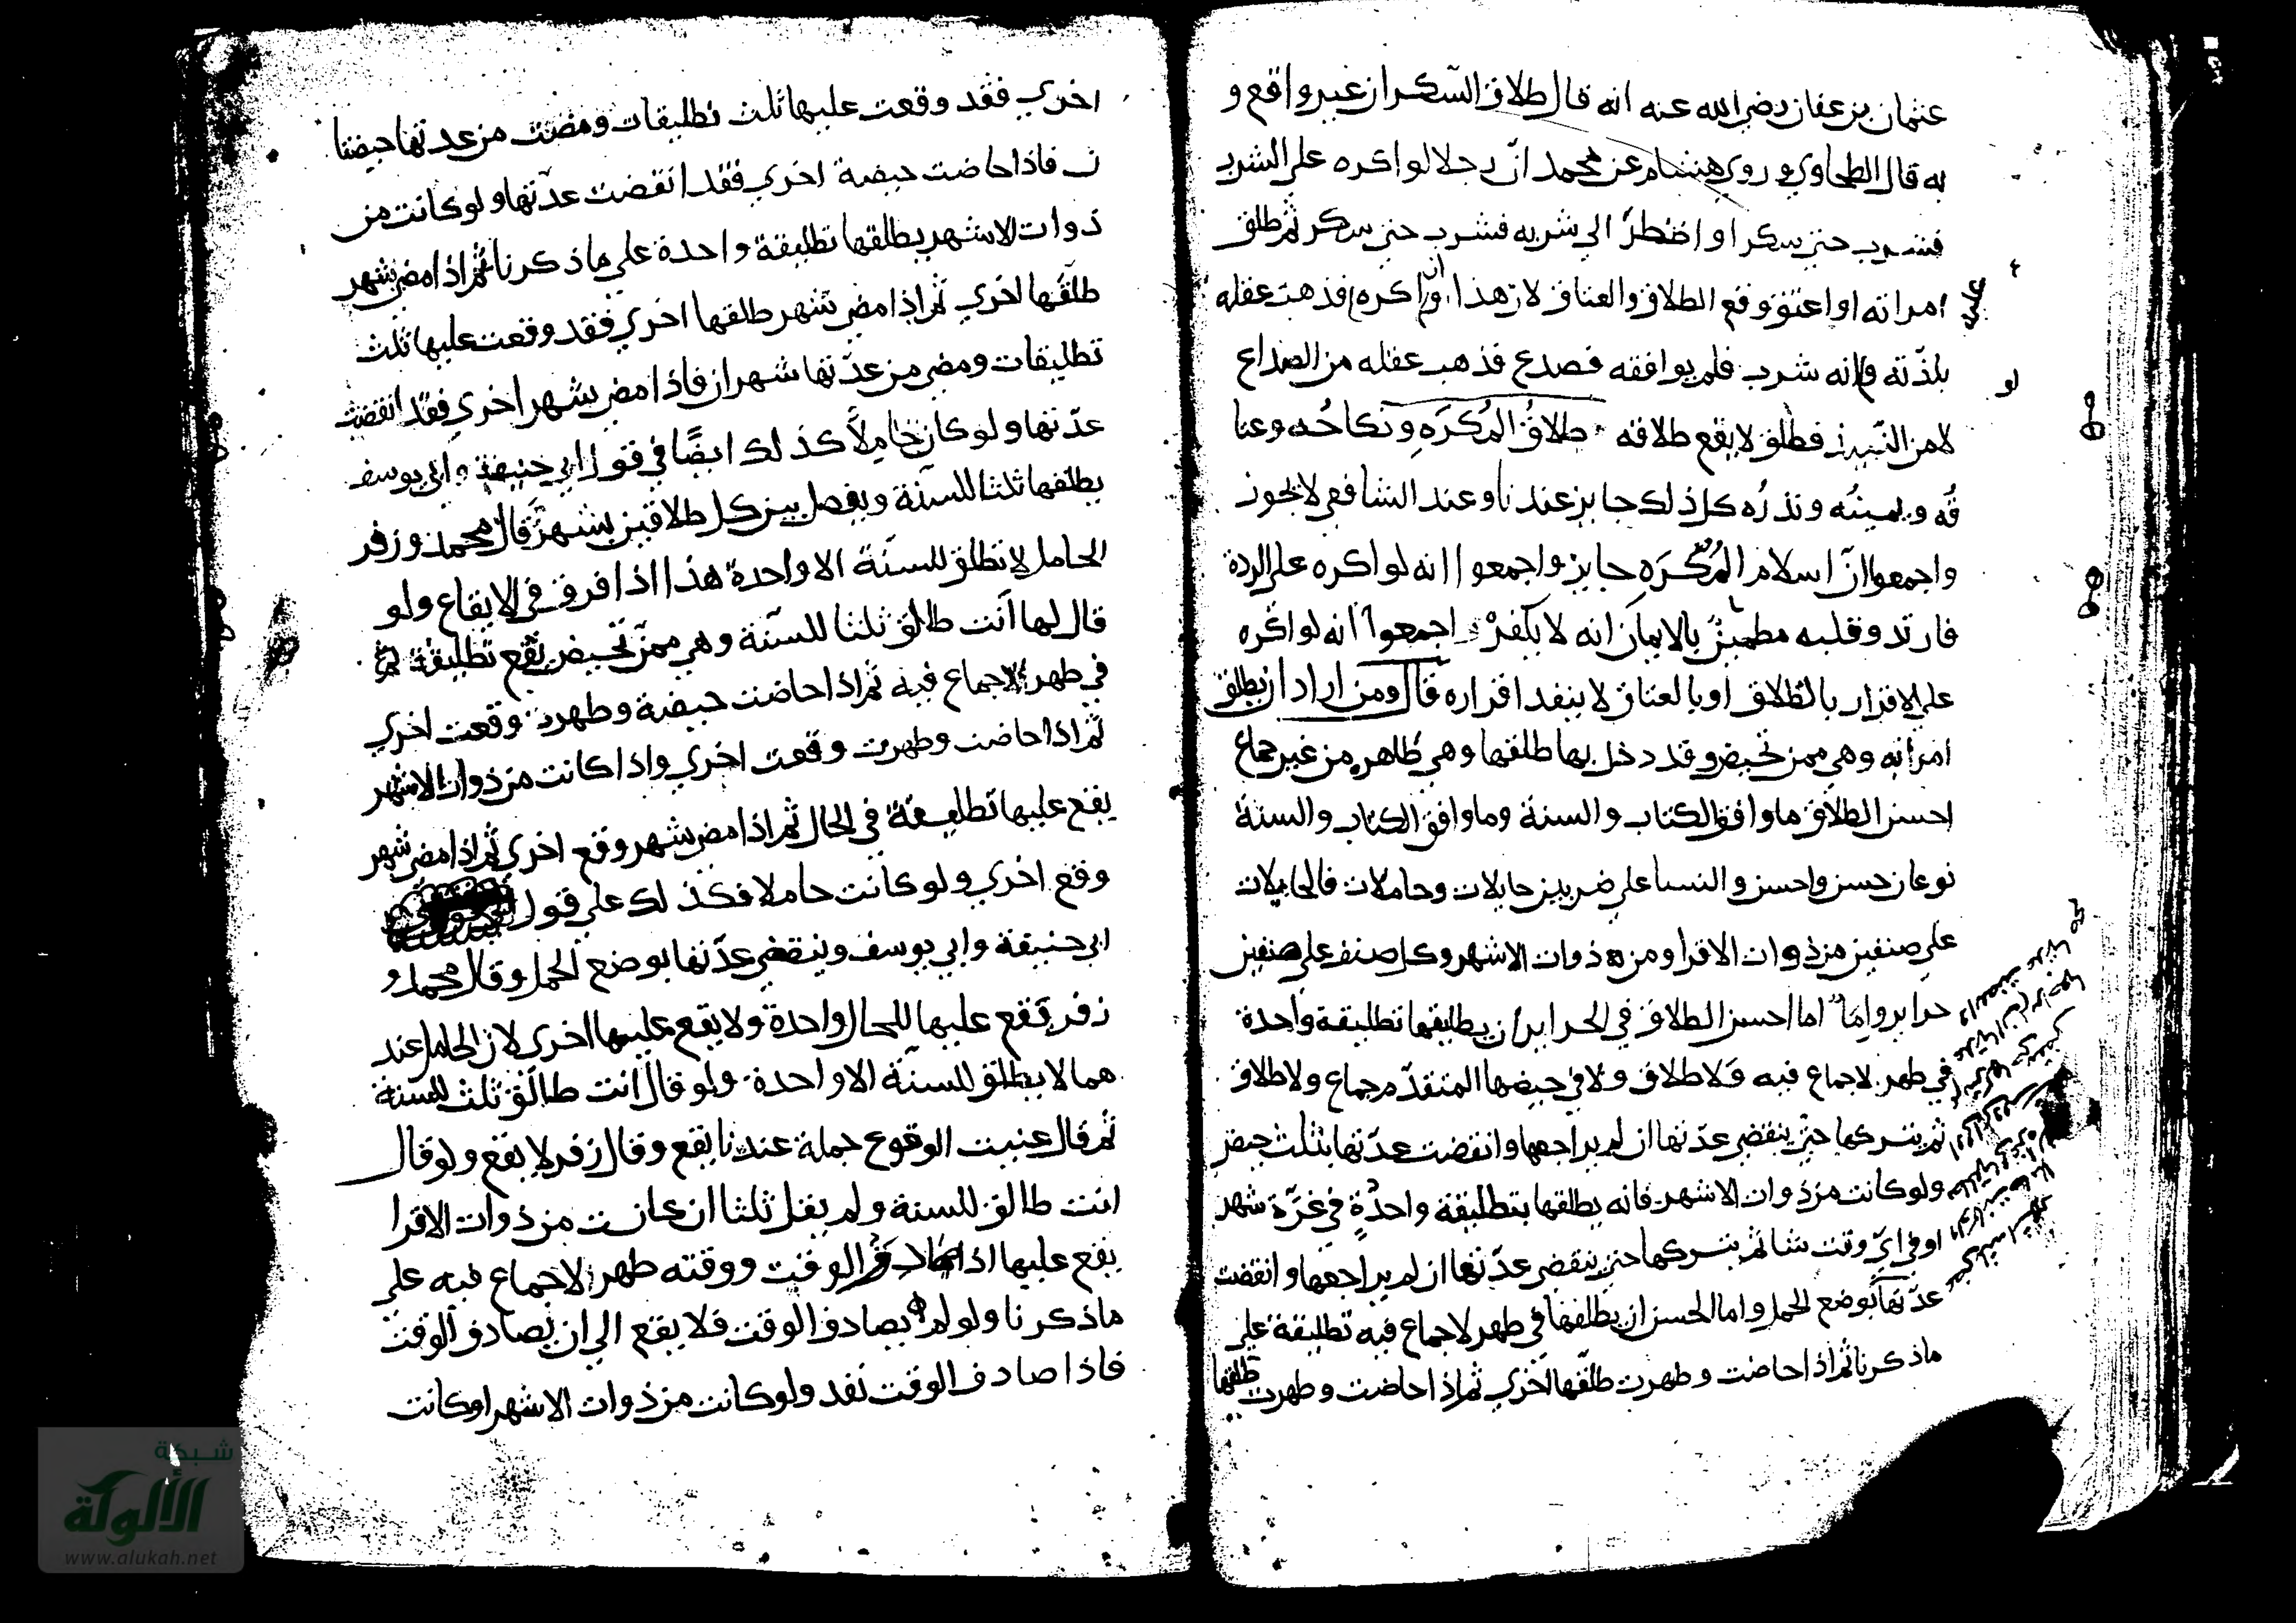 عثمان بن عفان رضي الله عنه انه قال طلاق السكران غير واقع و
به قال الطحاوي و روي هشام عن محمد انّ رجلا لو اكره على الشرب
فشرب حتى سكر او اضطرّ الى شربه فشرب حتى سكر ثم طلق
امراته او اعتق وقع الطلاق والعتاق لان هذا وان اكره فذهب عقله
بلذّته ولو انه شرب فلم يوافقه فصدع فذهب عقله من الصداع
لا من النّبيذ فطلق لا يقع طلاقه طلاقُ المُكرَهِ ونكاحُه وعتا
قُه ويمينُه ونذرُه كل ذلك جايز عندنا وعند الشافعي لا يجوز
واجمعوا انّ اسلام المُكرَهِ جايز واجمعوا انه لو اكره على الردة
فارتد وقلبه مطمئنٌّ بالايمان انه لا يكفر واجمعوا انه لو اكره
على الاقرار بالطلاق او بالعتاق لا ينفد اقراره قال ومن اراد ان يطلق
امراته وهي ممن تحيض وقد دخل بها طلقها وهي طاهره من غير جماع
احسن الطلاق ما وافق الكتاب والسنة وما وافق الكتاب والسنة
نوعان حسن واحسن والنسا على ضربين حايلات وحاملات فالحايلات
على صنفين من ذوات الاقرا ومن ذوات الاشهر وكل صنف على صنفين
حراير واما اما احسن الطلاق في الحراير ان يطلقها تطليقة واحدة
في طهر لا جماع فيه ولا طلاق ولا في حيضها المتقدّم جماع ولا طلاق
ثم يتركها حتى ينقضي عدّتها ان لم يراجعها وانقضت عدّتها بثلث حيض
ولو كانت من ذوات الاشهر فانه يطلقها بتطليقة واحدةٍ في غرّة شهر
او في ايّ وقت شا ثم يتركها حتى ينقضي عدّتها ان لم يراجعها وانقضت
عدّتها بوضع الحمل واما الحسن ان يطلقها في طهر لا جماع فيه تطليقة على
ماذكرنا ثم اذا حاضت وطهرت طلّقها اخري ثم اذا حاضت وطهرت طلقها
اخري فقد وقعت عليها ثلث تطليقات ومضت من عدتها حيضتا
ن فاذا حاضت حيضة اخري فقد انقضت عدّتها ولو كانت من
ذوات الاشهر يطلقها تطليقة واحدة علي ماذكرنا ثم اذا مضى شهر
طلّقها اخري ثم اذا مضى شهر طلقها اخري فقد وقعت عليها ثلث
تطليقات ومضى من عدّتها شهران فاذا مضى شهر اخرى فقد انقضت
عدّتها ولو كان حاملاً كذلك ايضًا في قول ابي حنيفة وابي يوسف
يطلقها ثلثا للسنة ويفصل بين كل طلاقين بشهر وقال محمد و زفر
الحامل لا تطلق للسنّة الا واحدة هذا اذا فرق في الايقاع ولو
قال لها انت طالق ثلثا للسنة وهي ممن تحيض يقع تطليقة
في طهر لاجماع فيه ثم اذا حاضت حيضة وطهرت وقعت اخري
ثم اذا حاضت وطهرت وقعت اخري واذا كانت من ذوات الاشهر
يقع عليها تطليقة في الحال ثم اذا مضى شهر وقع اخرى ثم اذا مضى شهر
وقع اخري ولو كانت حاملا فكذلك علي قول
ابي حنيفة وابي يوسف وينقضي عدّتها بوضع الحمل وقال محمد و
زفر يقع عليها للحال واحدة ولا يقع عليها اخرى لان الحامل عند
هما لا يطلق للسنّة الا واحدة ولو قال انت طالق ثلث للسنة
ثم قال عنيت الوقوع جملة عندنا يقع وقال زفر لا يقع ولو قال
انت طالق للسنة ولم يقل ثلثا ان كانت من ذوات الاقرا
يقع عليها اذا صادف الوقت ووقته طهر لاجماع فيه على
ماذكرنا ولو لم يصادف الوقت فلا يقع الى ان يصادف الوقت
فاذا صادف الوقت نفد ولو كانت من ذوات الاشهر او كانت
شبكة
الألوكة
www.alukah.net